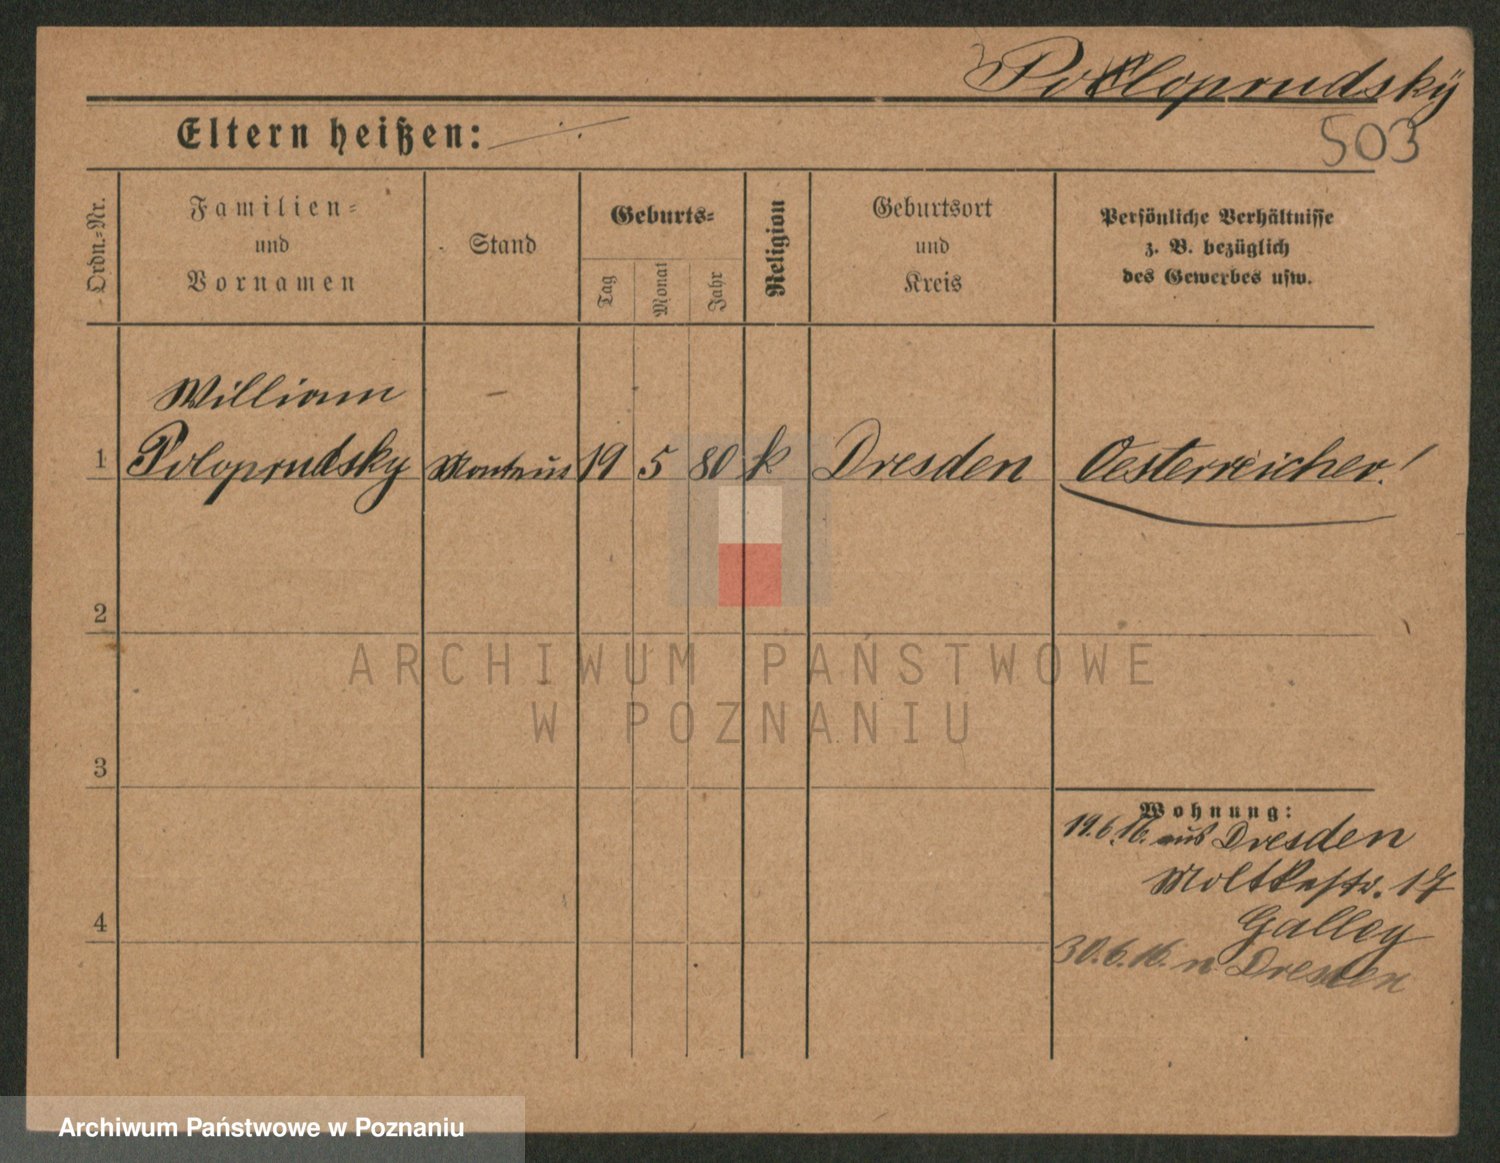 Poloprudsky
503
Eltern heißen:
Ordn.-Nr.
Familien-
und
Vornamen
Stand
Geburts-
Tag
Monat
Jahr
Religion
Geburtsort
und
Kreis
Persönliche Verhältnisse
z. B. bezüglich
des Gewerbes usw.
William
1 Poloprudsky 19 5 80 k Dresden Oesterreicher!
2
3
4
Wohnung:
19.6.16. aus Dresden
Moltkestr. 17
Galley
30.6.16. n Dresden
ARCHIWUM PAŃSTWOWE
W POZNANIU
Archiwum Państwowe w Poznaniu